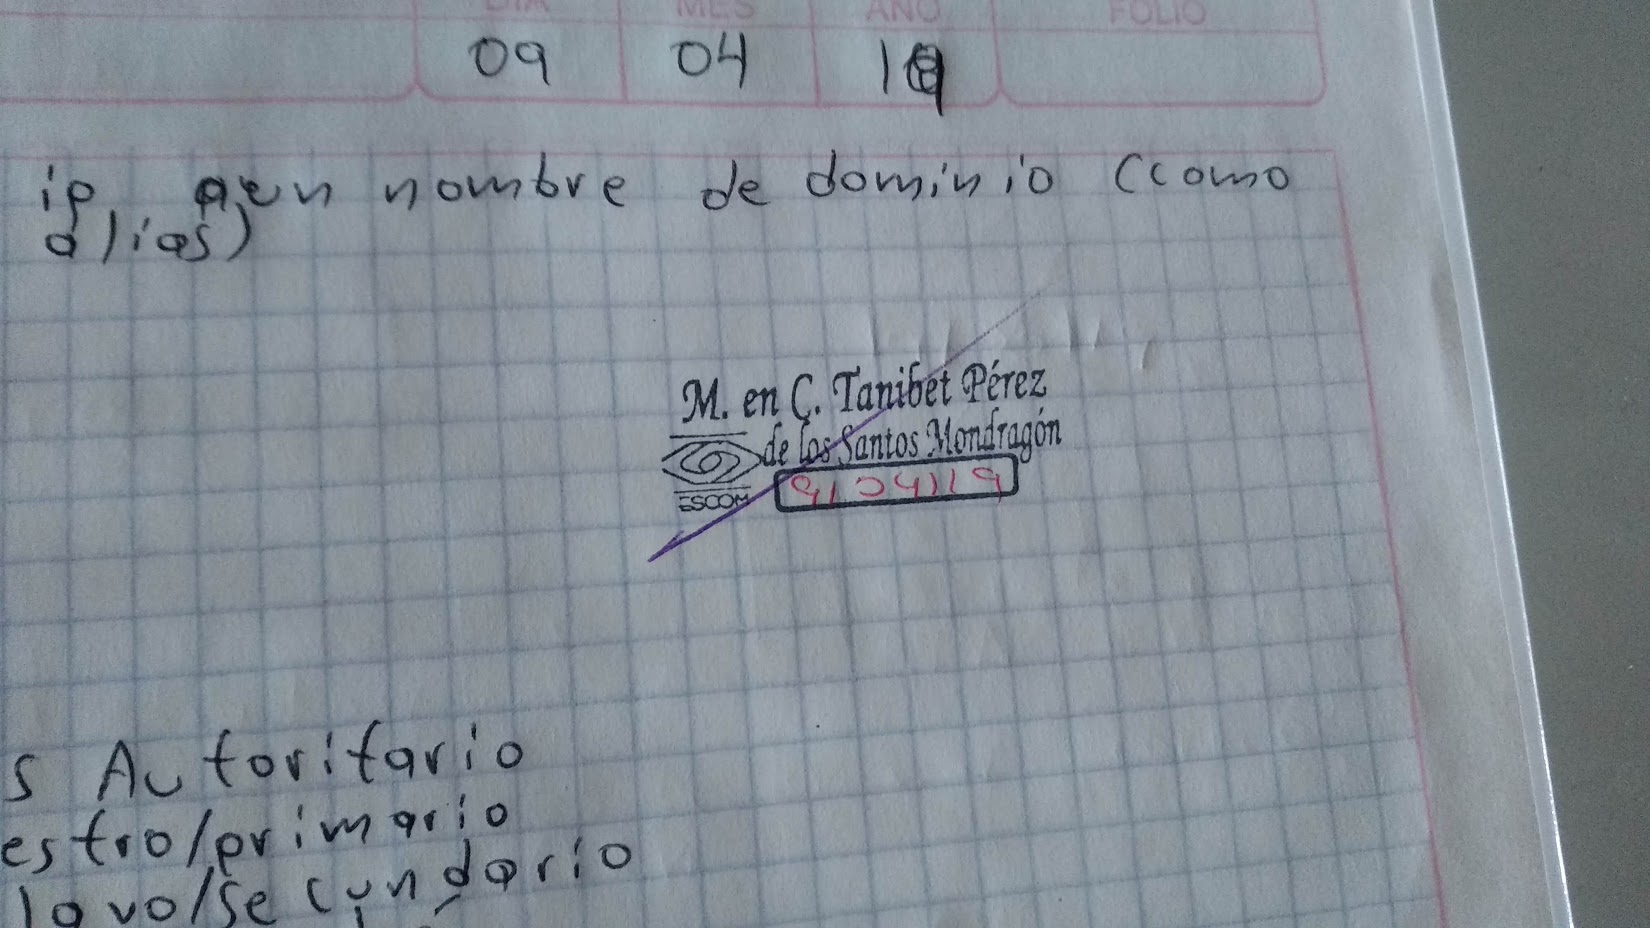 DIA MES AÑO FOLIO
09 04 19
ip a un nombre de dominio (como
alias)
M. en C. Tanibet Pérez
de los Santos Mondragón
ESCOM
s Autoritario
estro/primario
lavo/secundario